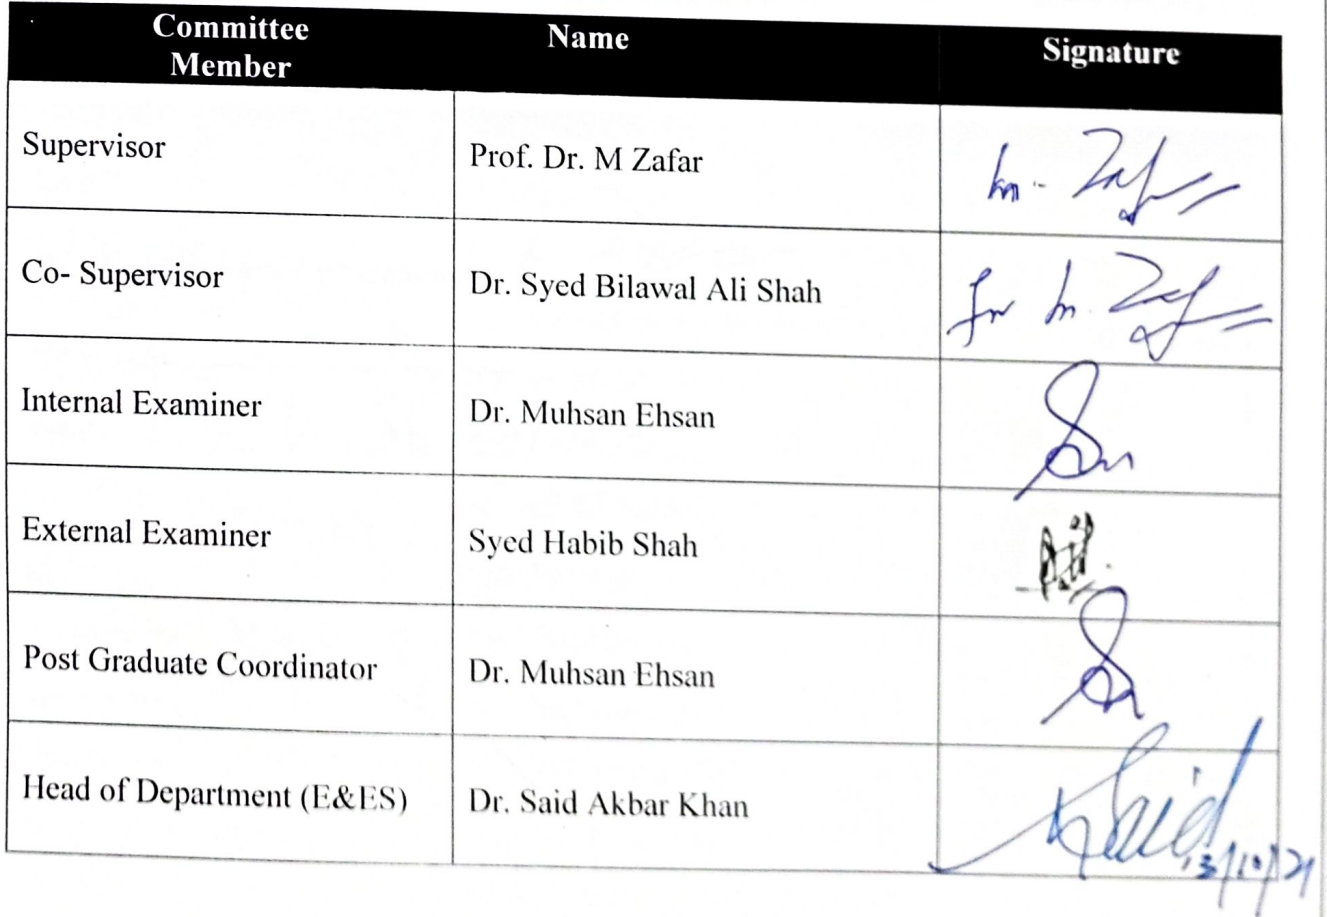 Committee
Member
Name
Signature
Supervisor
Prof. Dr. M Zafar
m. Zafar
Co- Supervisor
Dr. Syed Bilawal Ali Shah
for m. Zafar
Internal Examiner
Dr. Muhsan Ehsan
External Examiner
Syed Habib Shah
Post Graduate Coordinator
Dr. Muhsan Ehsan
Head of Department (E&ES)
Dr. Said Akbar Khan
Said
13/10/21